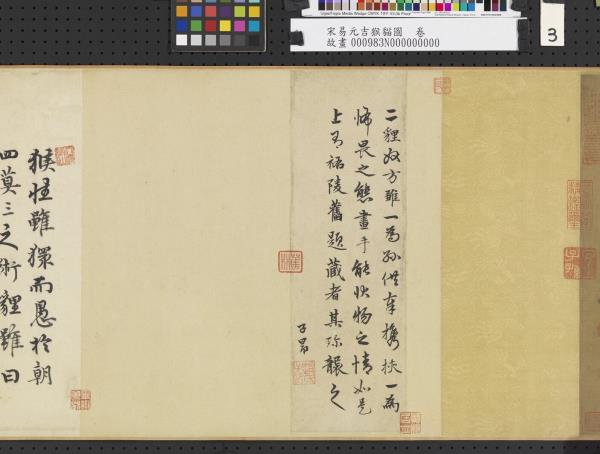 宋易元吉猴貓圖 卷
故畫 000983N000000000
3
二貍奴方雛一為孫供奉攜挾一為
怖畏之態畫手能狀物之情如是
上有祐陵舊題藏者其珍襲之
子昂
猴性雖獧而愚於朝
四莫三之術貍雖曰